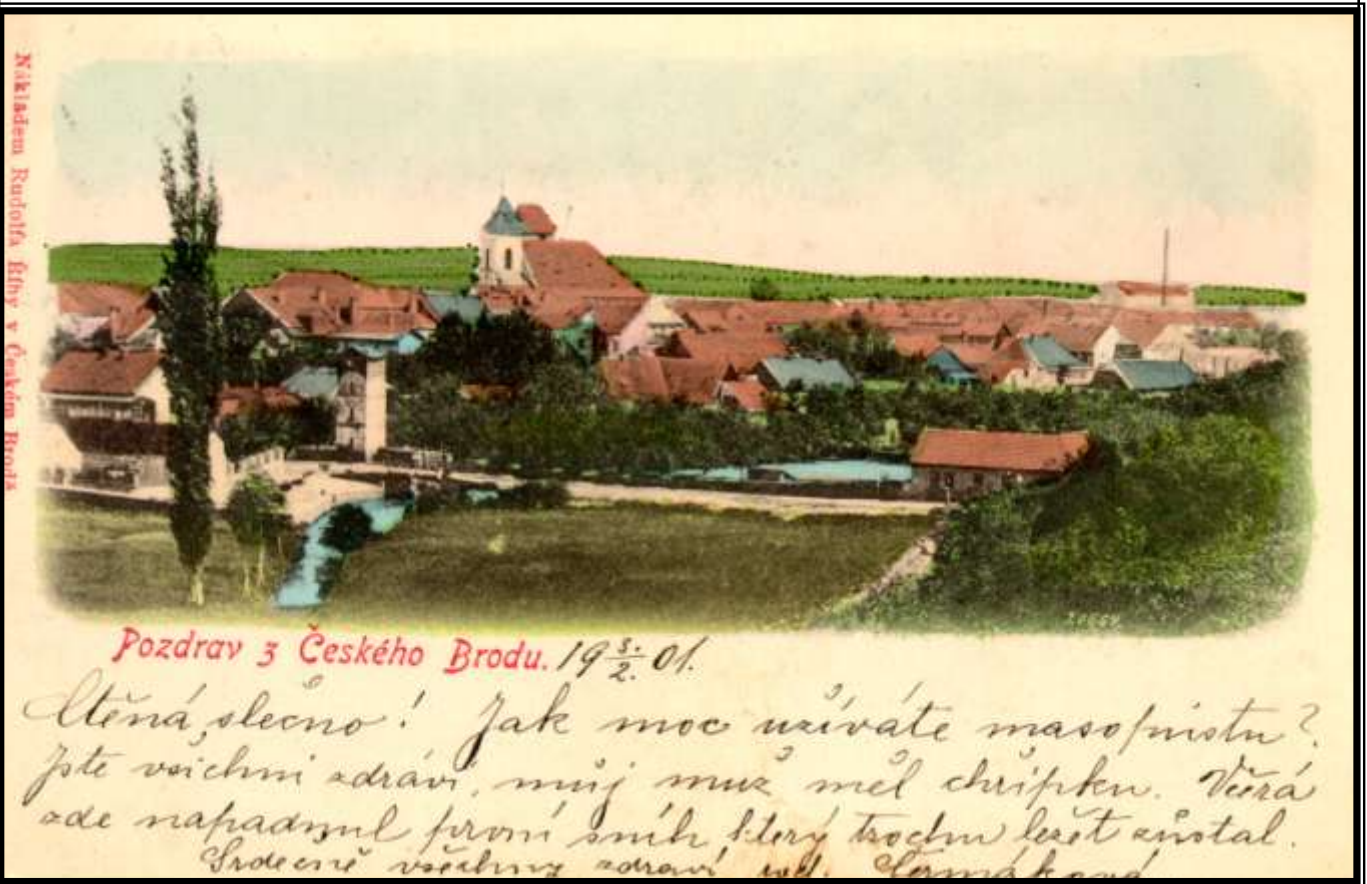 Nákladem Rudolfa Říhy v Českém Brodě
Pozdrav z Českého Brodu. 19 3./2. 01.
Ctěná slečno! Jak moc užíváte masopustu?
Jste všichni zdrávi, můj muž měl chřipku. Včera
zde napadnul první sníh, který trochu ležet zůstal.
Srdečně všechny zdraví